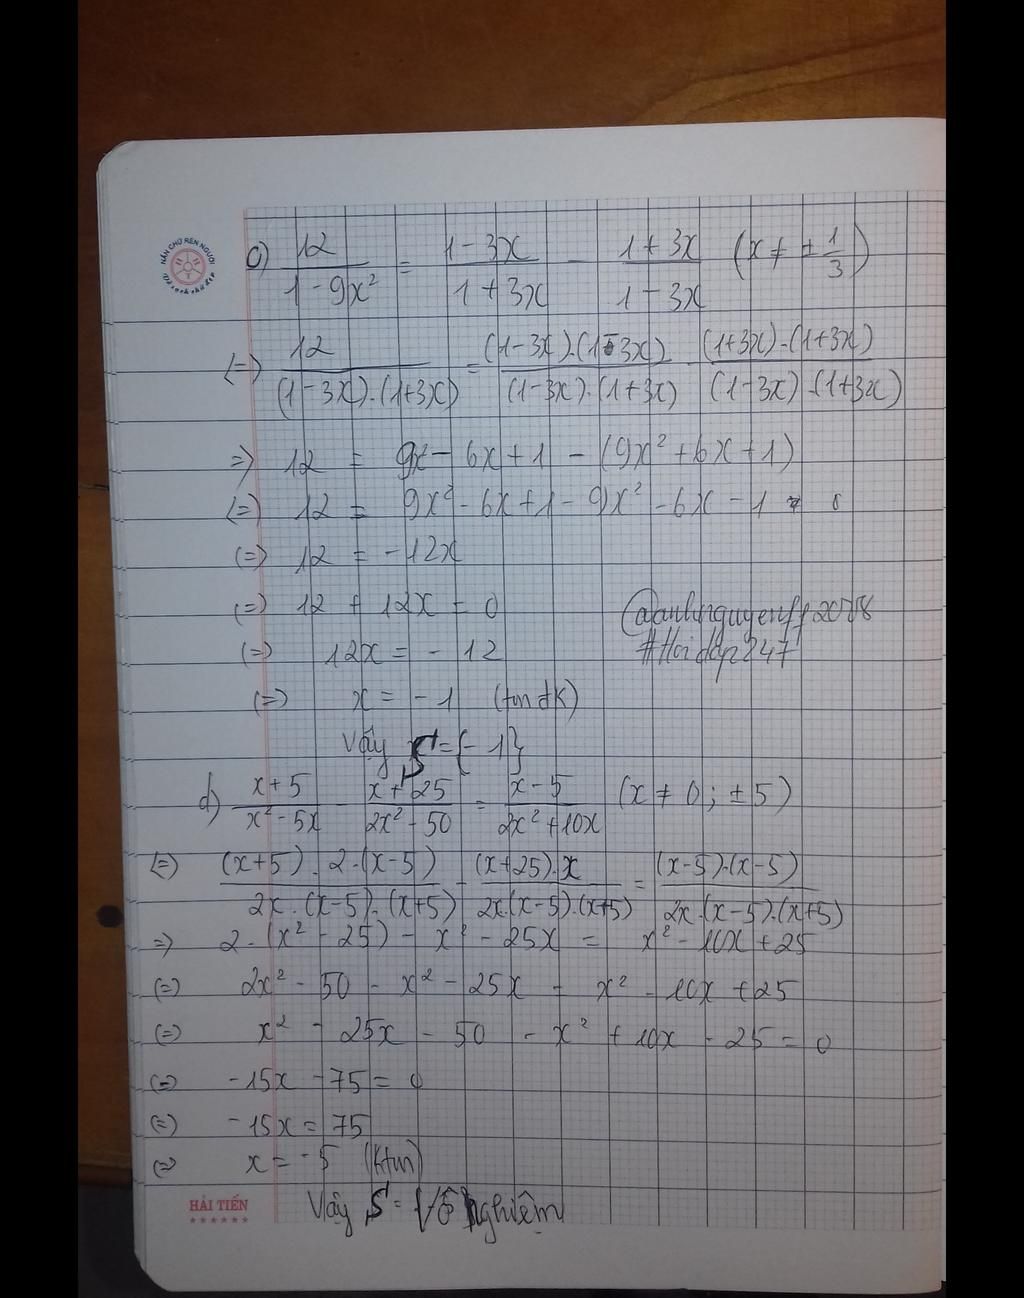 NẮN CHỮ RÈN NGƯỜI
c) 12/(1 - 9x²) = (1 - 3x)/(1 + 3x) - (1 + 3x)/(1 - 3x) (x ≠ ± 1/3)
(=) 12/((1 - 3x).(1+3x)) = ((1 - 3x).(1-3x))/((1-3x).(1+3x)) - ((1+3x).(1+3x))/((1-3x).(1+3x))
=> 12 = 9x² - 6x + 1 - (9x² + 6x + 1)
(=) 12 = 9x² - 6x + 1 - 9x² - 6x - 1
(=) 12 = -12x
(=) 12 + 12x = 0
(=) 12x = -12
#Hoidap247
(=) x = -1 (tm đk)
Vậy S = {-1}
d) (x+5)/(x² - 5x) - (x + 25)/(2x² - 50) = (x - 5)/(2x² + 10x) (x ≠ 0; ±5)
(=) ((x+5).2.(x-5))/(2x.(x-5).(x+5)) - ((x+25).x)/(2x.(x-5).(x+5)) = ((x-5).(x-5))/(2x.(x-5).(x+5))
=> 2.(x² - 25) - x² - 25x = x² - 10x + 25
(=) 2x² - 50 - x² - 25x = x² - 10x + 25
(=) x² - 25x - 50 - x² + 10x - 25 = 0
(=) -15x - 75 = 0
(=) -15x = 75
(=) x = -5 (ktm)
HẢI TIẾN
Vậy S = {Vô nghiệm